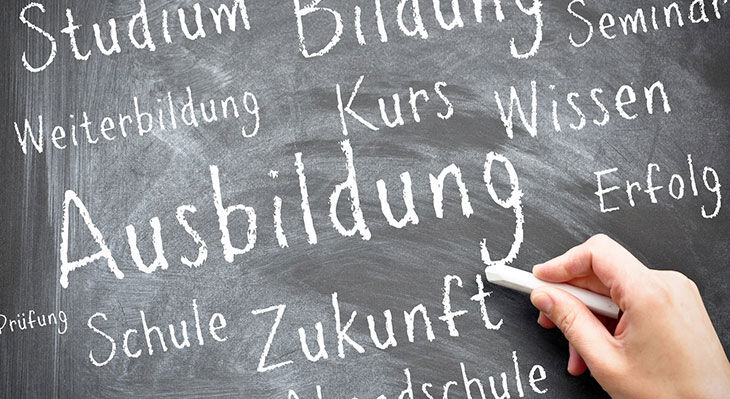 Studium Bildung Seminar
Weiterbildung Kurs Wissen
Ausbildung Erfolg
Prüfung Schule Zukunft
Abendschule